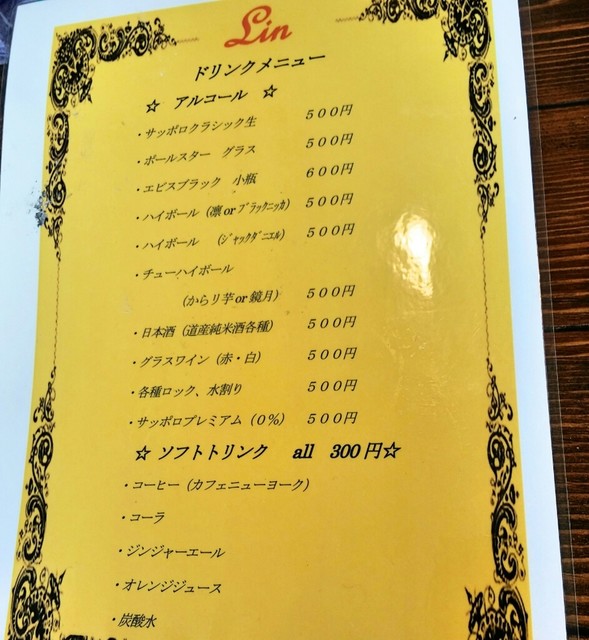 Lin
ドリンクメニュー
☆ アルコール ☆
・サッポロクラシック生 500円
・ポールスター グラス 500円
・エビスブラック 小瓶 600円
・ハイボール（凛orﾌﾞﾗｯｸﾆｯｶ） 500円
・ハイボール （ｼﾞｬｯｸﾀﾞﾆｴﾙ） 500円
・チューハイボール
（からり芋or鏡月） 500円
・日本酒（道産純米酒各種） 500円
・グラスワイン（赤・白） 500円
・各種ロック、水割り 500円
・サッポロプレミアム（０％） 500円
☆ ソフトトリンク all 300円☆
・コーヒー（カフェニューヨーク）
・コーラ
・ジンジャーエール
・オレンジジュース
・炭酸水